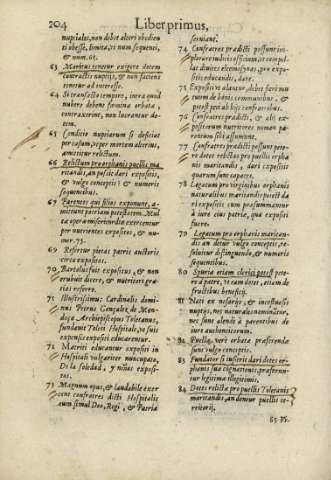 204 Liber primus,
nuptiales, non debet alteri obedien
ti obesse, limita, vt num. sequenti,
& num. 65.
63 Maritus tenetur exigere dotem
contractis nuptijs, & non faciens
tenetur ad interesse.
64 Si transacto tempore, intra quod
nubere debent foemina orbata,
contraxerint, non lucrantur do-
tem.
65 Conditio nuptiarum si deficiat
per casum, vt per mortem alterius,
amittitur relictum.
66 Relictum pro orphanis puellis ma
ritandis, an possit dari expositis,
& vulgo conceptis? & numeris
sequentibus.
67 Parentes qui filios exponunt, a-
mittunt patriam potestatem. Mul
ta opera misericordiae exercentur
per nutrientes expositos, & nu-
mer. 73.
69 Refertur pietas patris auctoris
circa expositos.
70 Bartolus fuit expositus, & non
erubuit dicere, & nutrienti gra-
tias referre.
71 Illustrissimus Cardinalis domi-
nus Petrus Gonzalez de Men-
doça Archiepiscopus Toletanus,
fundator Toleti Hospitale, vt suis
expensis expositi educarentur.
72 Matriti educantur expositi in
Hospitali vulgariter nuncupato,
De la soledad, y niños exposi-
tos.
73 Magnum opus, & laudabile exer
cent confratres dicti Hospitalis
cum simul Deo, Regi, & Patriae
serviant.
74 Confratres praedicti possunt im-
plorare iudicis officium, vt compel
lat diuites eleemosynas, pro expo-
sitis educandis, dare.
75 Expositi vt alantur, debet fieri mu
tuum de bonis communibus, &
potest peti ab his confratribus.
76 Confratres praedicti, & alij ex-
positorum nutritores nomen pa-
rentum sibi assumunt.
77 Confratres praedicti possunt pete-
re dotes relictas pro puellis orpha
nis maritandis, dari expositis
quarum sunt capaces.
78 Legatum pro virginibus orphanis
naturalibus maritandis potest da
ri expositis cum praesummantur
à iure eius patriae, qua expositi
fuere.
79 Legatum pro orphanis maritan-
dis an detur vulgo conceptis, re-
soluitur distinguendo, & numeris
sequentibus.
80 Spuria etiam clerici potest pete-
re à patre, vt eam dotet, etiam de
fructibus beneficij.
81 Nati ex nefarijs, & incestuosis
nuptijs, nec naturales nominãtur,
nec sunt alendi à parentibus de
iure authenticorum.
82 Puellae verè orbatae praeferendae
sunt vulgo conceptis.
83 Fundator si iusserit dari dotes or-
phanis suae cognationis, praeferun-
tur legitima illegitimis.
84 Dotes relictae pro puellis Toletanis
maritandis, an demur puellis ter-
ritorij.
85 Vt.